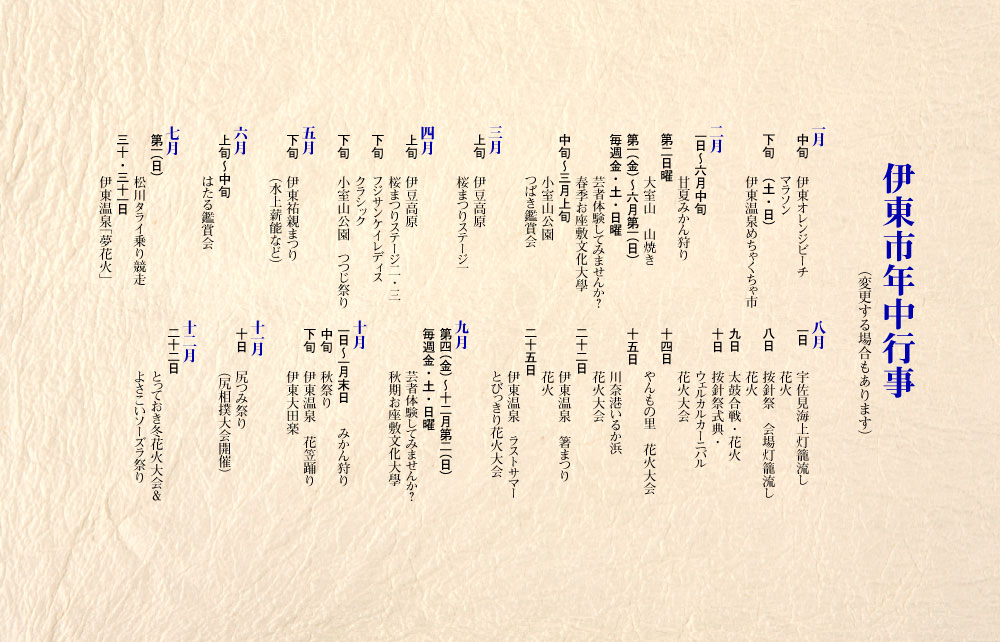 伊東市年中行事
（変更する場合もあります）
一月
中旬　伊東オレンジビーチ
マラソン
下旬　（土・日）
伊東温泉めちゃくちゃ市
二月
一日〜六月中旬
甘夏みかん狩り
第二日曜
大室山　山焼き
第一（金）〜六月第一（日）
毎週金・土・日曜
芸者体験してみませんか？
春季お座敷文化大學
中旬〜三月上旬
小室山公園
つばき鑑賞会
三月
上旬　伊豆高原
桜まつりステージ一
四月
上旬　伊豆高原
桜まつりステージ二・三
下旬　フジサンケイレディス
クラシック
下旬　小室山公園　つつじ祭り
五月
下旬　伊東祐親まつり
（水上薪能など）
六月
上旬〜中旬
ほたる鑑賞会
七月
第一（日）
松川タライ乗り競走
三十・三十一日
伊東温泉「夢花火」
八月
一日　宇佐見海上灯籠流し
花火
八日　按針祭　会場灯籠流し
花火
九日　太鼓合戦・花火
十日　按針祭式典・
ウェルカルカーニバル
花火大会
十四日
やんもの里　花火大会
十五日
川奈港いるか浜
花火大会
二十二日
伊東温泉　箸まつり
花火
二十五日
伊東温泉　ラストサマー
とびっきり花火大会
九月
第四（金）〜十二月第二（日）
毎週金・土・日曜
芸者体験してみませんか？
秋期お座敷文化大學
十月
一日〜一月末日　みかん狩り
中旬　秋祭り
下旬　伊東温泉　花笠踊り
伊東大田楽
十一月
十日　尻つみ祭り
（尻相撲大会開催）
十二月
二十二日
とっておき冬花火大会＆
よさこいソーズラ祭り